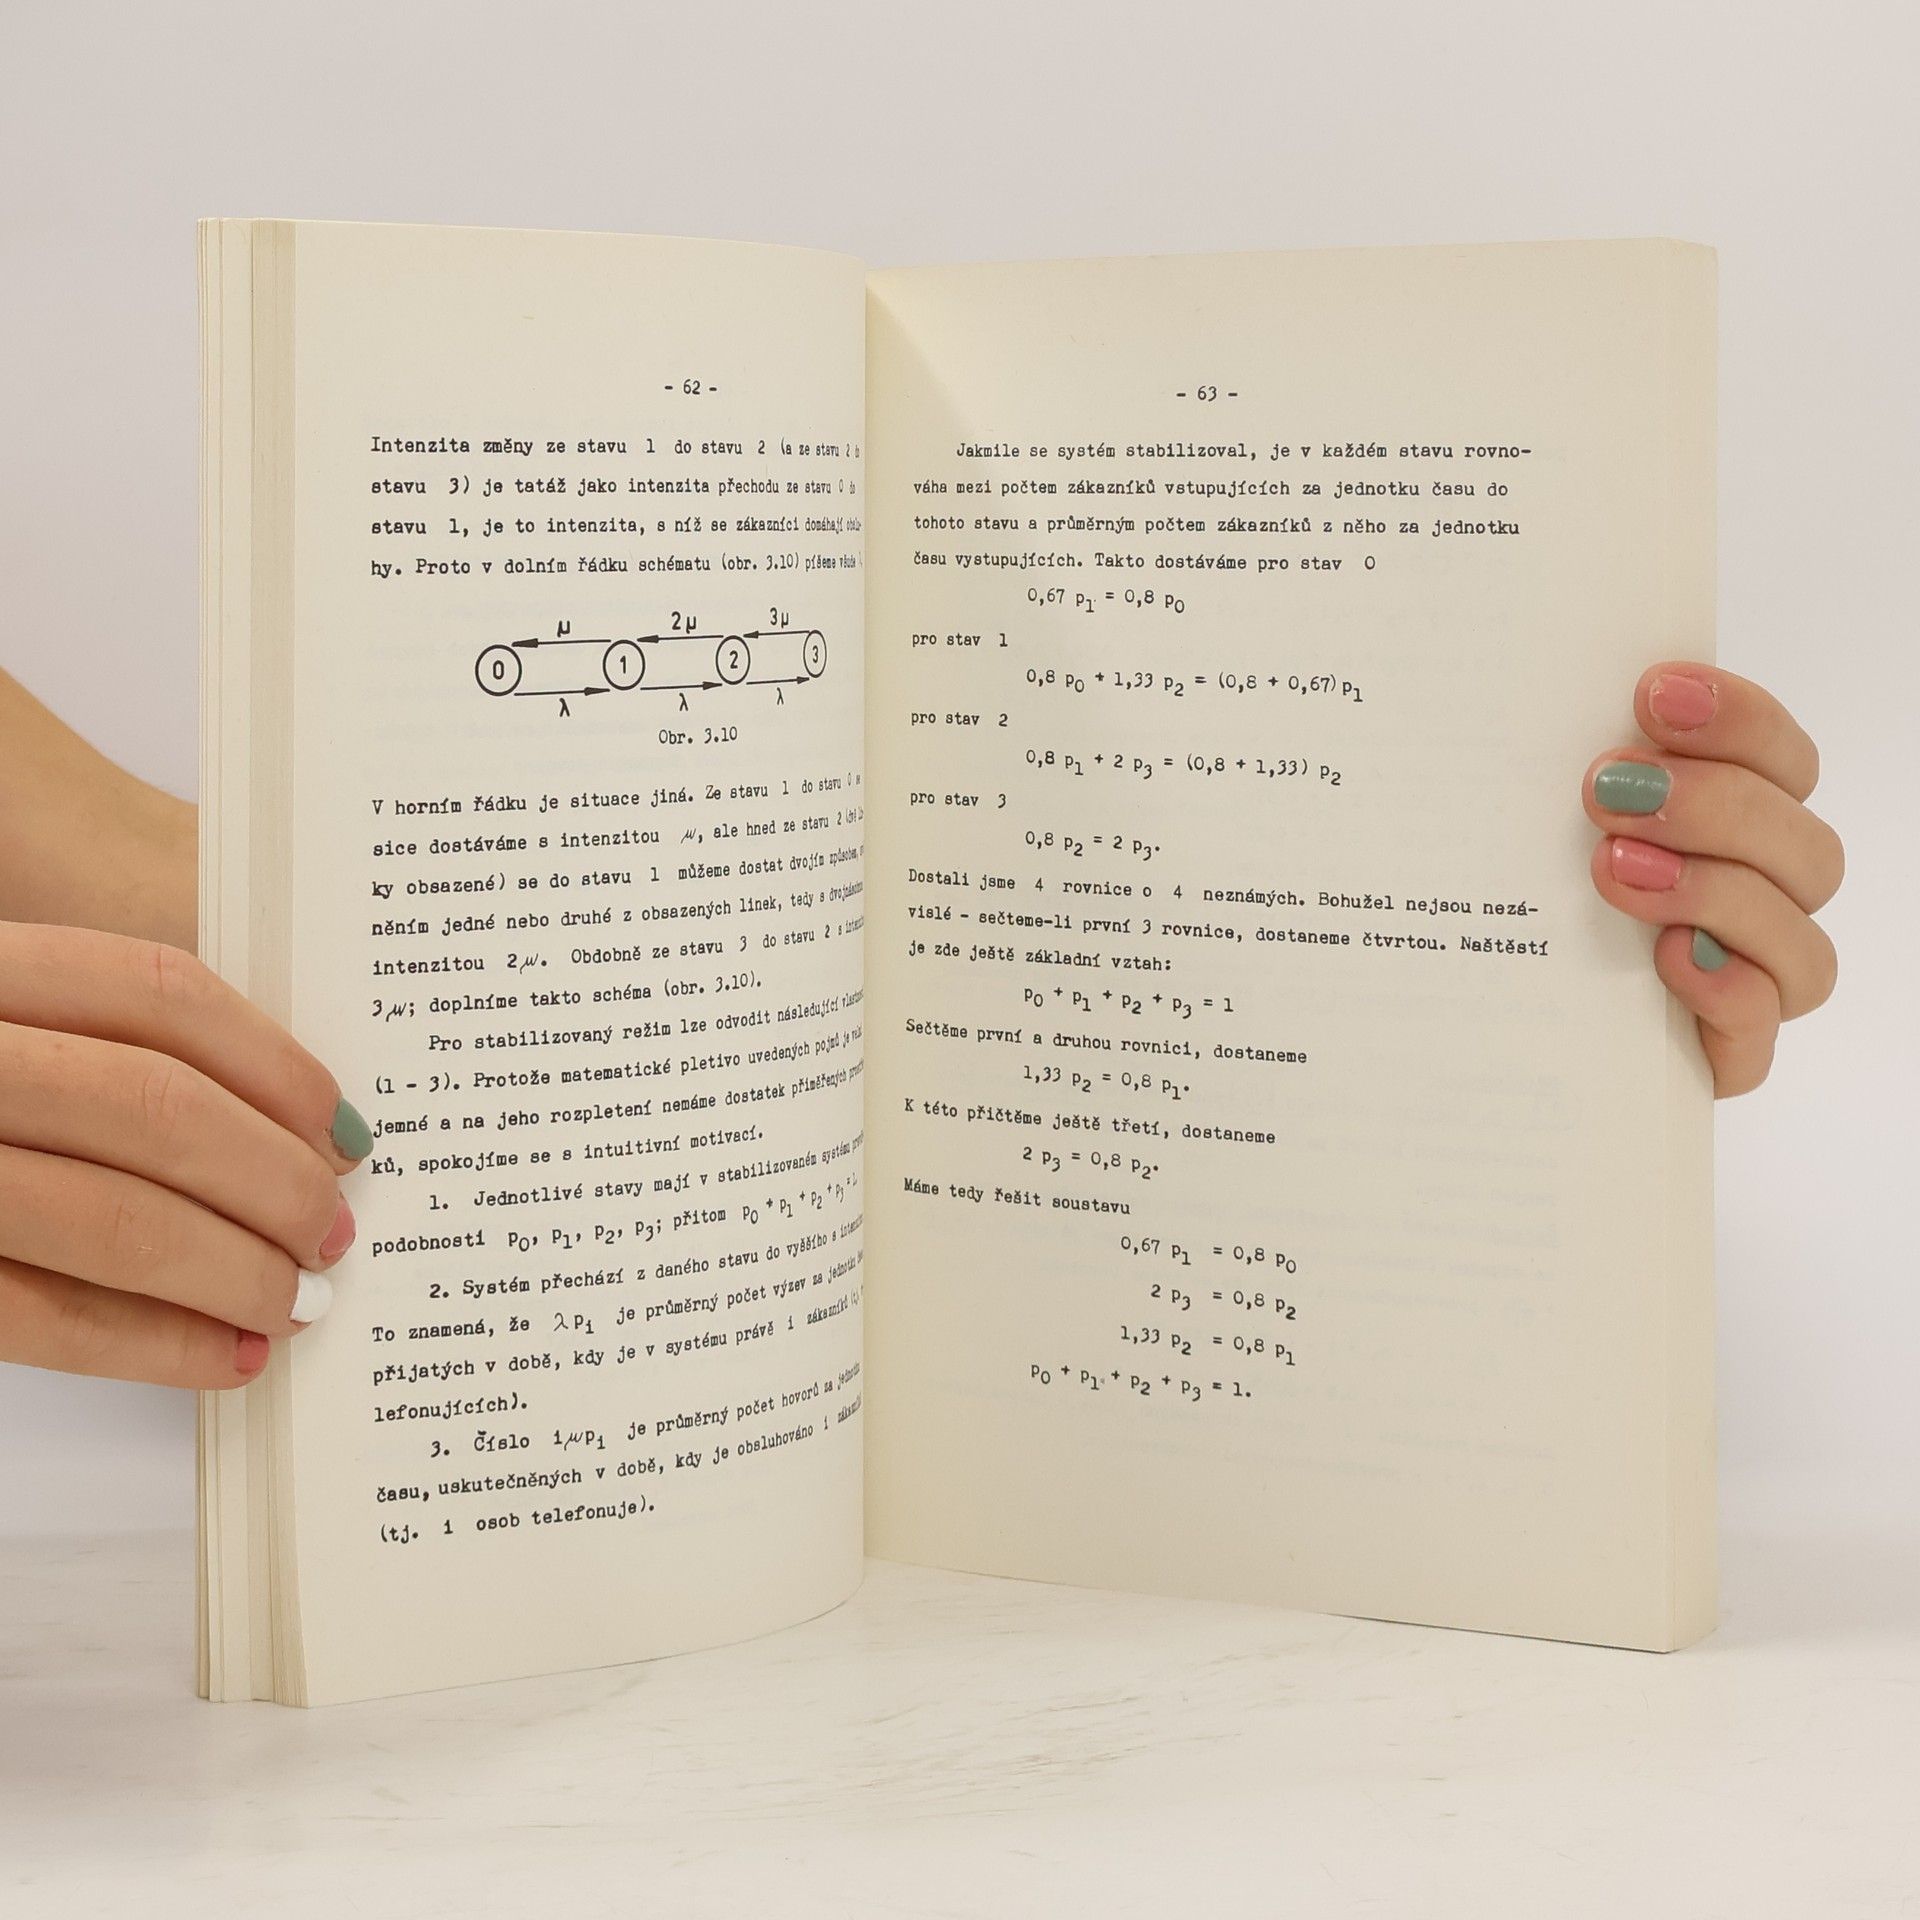 - 62 -
Intenzita změny ze stavu 1 do stavu 2 (a ze stavu 2 do
stavu 3) je tatáž jako intenzita přechodu ze stavu 0 do
stavu 1, je to intenzita, s níž se zákazníci domáhají obslu-
hy. Proto v dolním řádku schématu (obr. 3.10) píšeme všude λ
μ 2μ 3μ
0 1 2 3
λ λ λ
Obr. 3.10
V horním řádku je situace jiná. Ze stavu 1 do stavu 0 se
sice dostáváme s intenzitou μ, ale hned ze stavu 2 (dvě lin-
ky obsazené) se do stavu 1 můžeme dostat dvojím způsobem,
něním jedné nebo druhé z obsazených linek, tedy s dvojnásobnou
intenzitou 2μ. Obdobně ze stavu 3 do stavu 2 s intenzitou
3μ; doplníme takto schéma (obr. 3.10).
Pro stabilizovaný režim lze odvodit následující vlastnosti
(1 - 3). Protože matematické pletivo uvedených pojmů je velmi
jemné a na jeho rozpletení nemáme dostatek přiměřených prostřed-
ků, spokojíme se s intuitivní motivací.
1. Jednotlivé stavy mají v stabilizovaném systému pravdě-
podobnosti p0, p1, p2, p3; přitom p0 + p1 + p2 + p3 = 1.
2. Systém přechází z daného stavu do vyššího s intenzitou
To znamená, že λpi je průměrný počet výzev za jednotku času
přijatých v době, kdy je v systému právě i zákazníků (tj.
lefonujících).
3. Číslo iμpi je průměrný počet hovorů za jednotku
času, uskutečněných v době, kdy je obsluhováno i zákazníků
(tj. i osob telefonuje).
- 63 -
Jakmile se systém stabilizoval, je v každém stavu rovno-
váha mezi počtem zákazníků vstupujících za jednotku času do
tohoto stavu a průměrným počtem zákazníků z něho za jednotku
času vystupujících. Takto dostáváme pro stav 0
0,67 p1 = 0,8 p0
pro stav 1
0,8 p0 + 1,33 p2 = (0,8 + 0,67)p1
pro stav 2
0,8 p1 + 2 p3 = (0,8 + 1,33) p2
pro stav 3
0,8 p2 = 2 p3.
Dostali jsme 4 rovnice o 4 neznámých. Bohužel nejsou nezá-
vislé - sečteme-li první 3 rovnice, dostaneme čtvrtou. Naštěstí
je zde ještě základní vztah:
p0 + p1 + p2 + p3 = 1
Sečtěme první a druhou rovnici, dostaneme
1,33 p2 = 0,8 p1.
K této přičtěme ještě třetí, dostaneme
2 p3 = 0,8 p2.
Máme tedy řešit soustavu
0,67 p1 = 0,8 p0
2 p3 = 0,8 p2
1,33 p2 = 0,8 p1
p0 + p1 + p2 + p3 = 1.